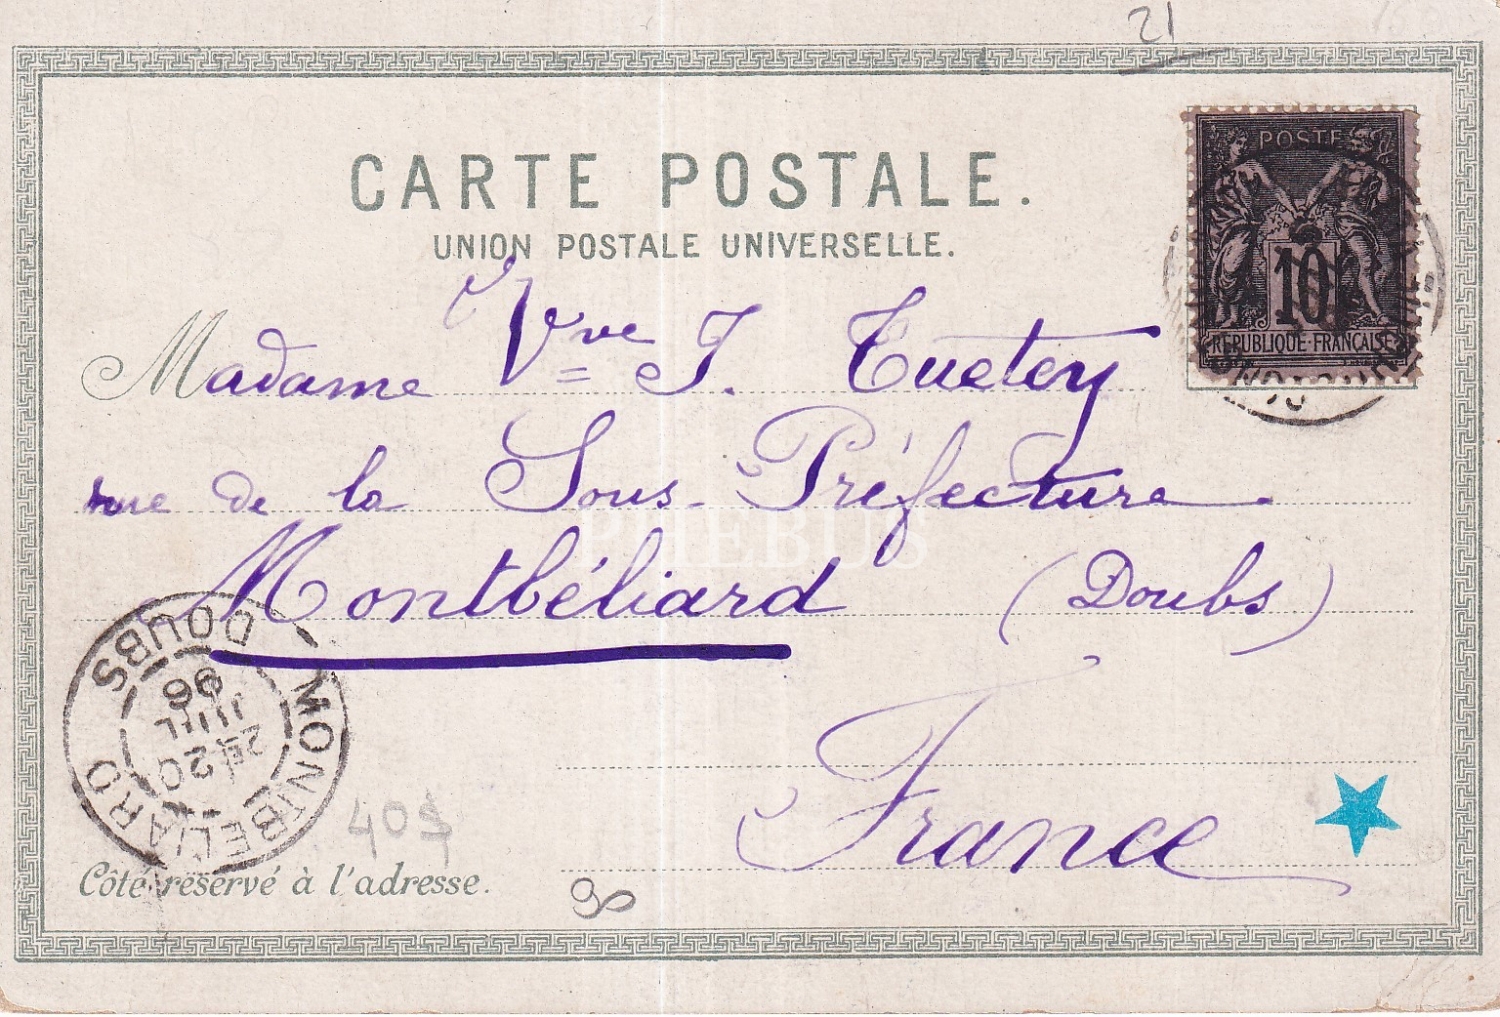 21
CARTE POSTALE.
UNION POSTALE UNIVERSELLE.
POSTES
10
REPUBLIQUE·FRANCAISE
Madame Vve J. Tuetey
rue de la Sous-Préfecture
PHEBUS
Montbéliard (Doubs)
France
MONTBELIARD
DOUBS
20
JUIL
96
40$
Côté réservé à l'adresse.